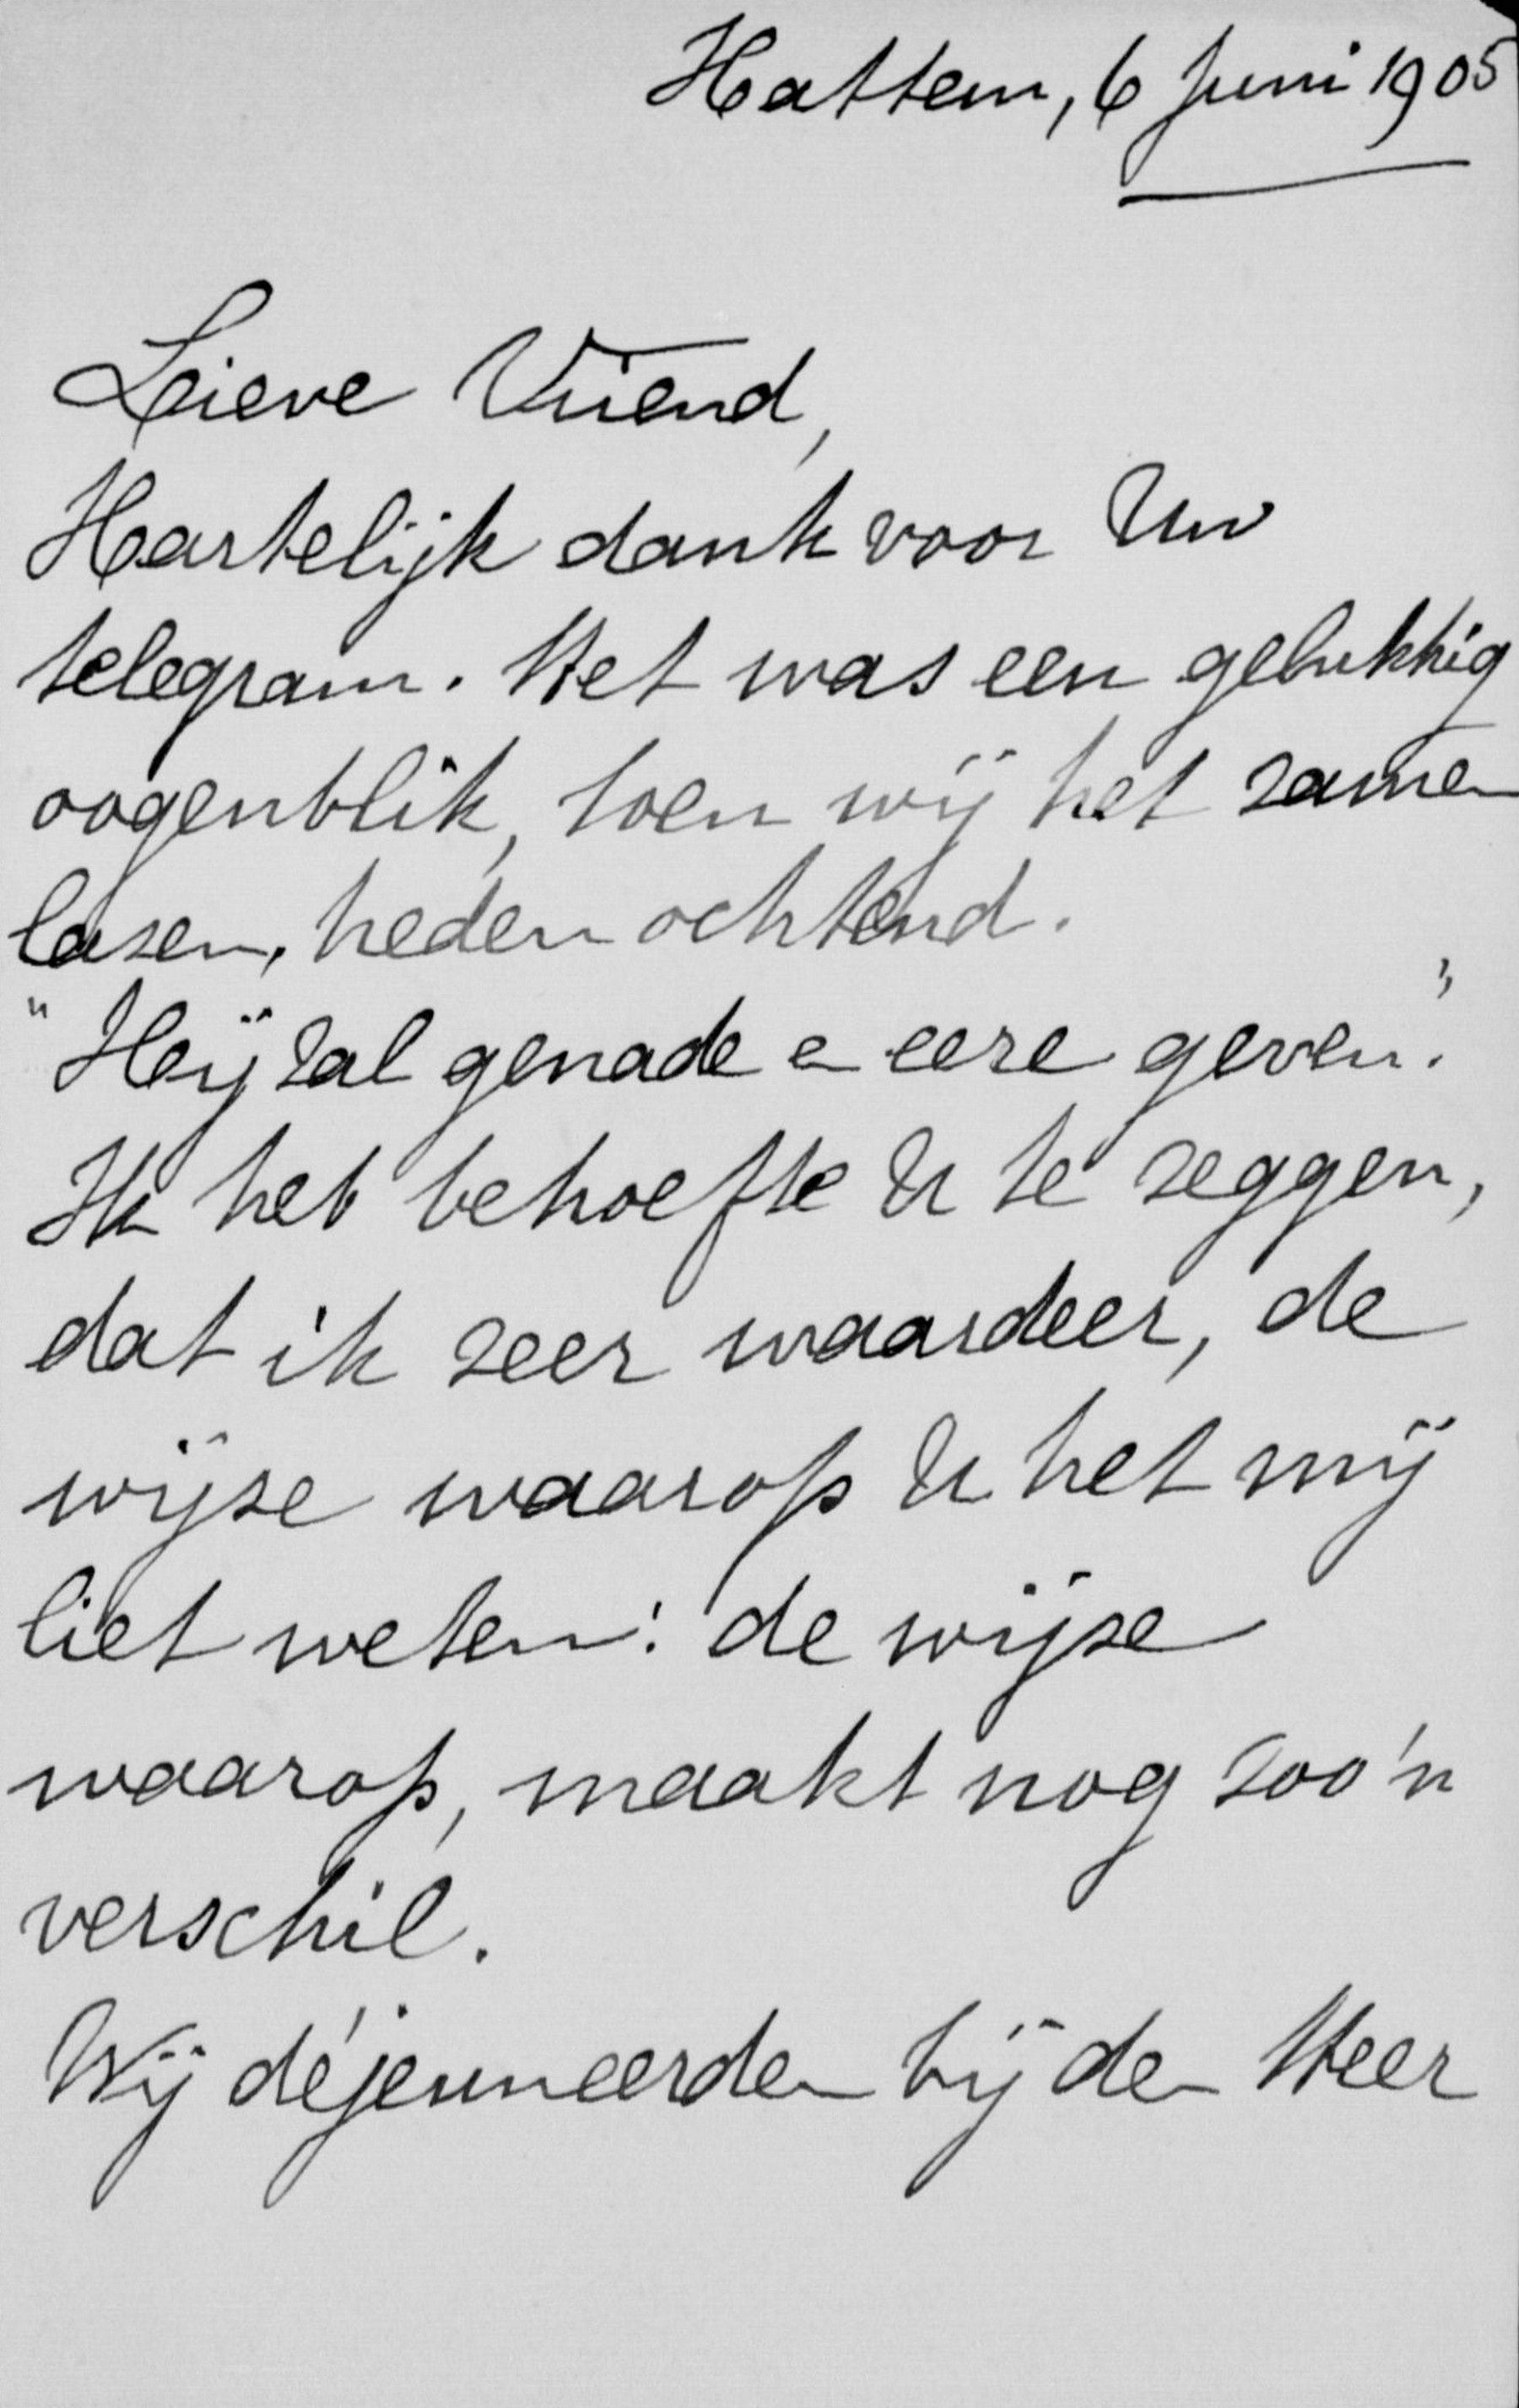 Hattem, 6 Juni 1905
Lieve Vriend,
Hartelijk dank voor Uw
telegram. Het was een gelukkig
oogenblik, toen wij het samen
lazen, heden ochtend.
"Hij zal genade en eere geven."
Ik heb behoefte U te zeggen,
dat ik zeer waardeer, de
wijze waarop U het mij
liet weten: de wijze
waarop, maakt nog zoo'n
verschil.
Wij déjeuneerden bij den Heer